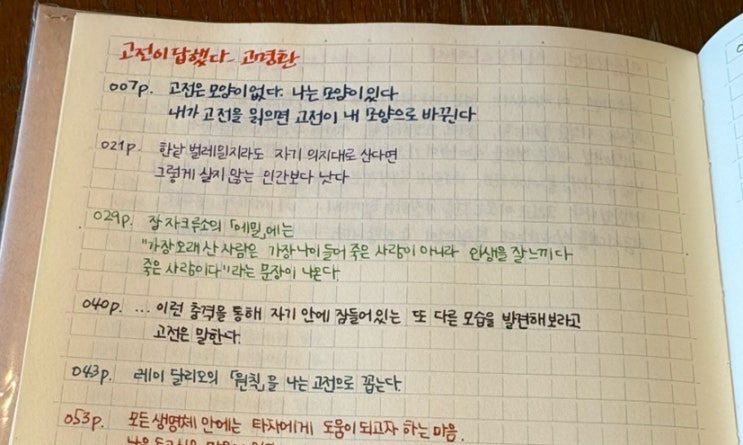 고전이 답했다 - 고명환
007p. 고전은 모양이 없다. 나는 모양이 있다
내가 고전을 읽으면 고전이 내 모양으로 바뀐다
021p. 한낱 벌레일지라도 자기 의지대로 산다면
그렇게 살지 않는 인간보다 낫다
029p. 장 자크루소의 「에밀」에는
"가장 오래 산 사람은 가장 나이 들어 죽은 사람이 아니라 인생을 잘 느끼다
죽은 사람이다"라는 문장이 나온다.
040p. ... 이런 충격을 통해 자기 안에 잠들어있는 또 다른 모습을 발견해보라고
고전은 말한다.
043p. 레이 달리오의 「원칙」을 나는 고전으로 꼽는다.
053p. 모든 생명체 안에는 타자에게 도움이 되고자 하는 마음.